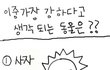 이중 가장 강하다고
생각되는 동물은??
① 사자